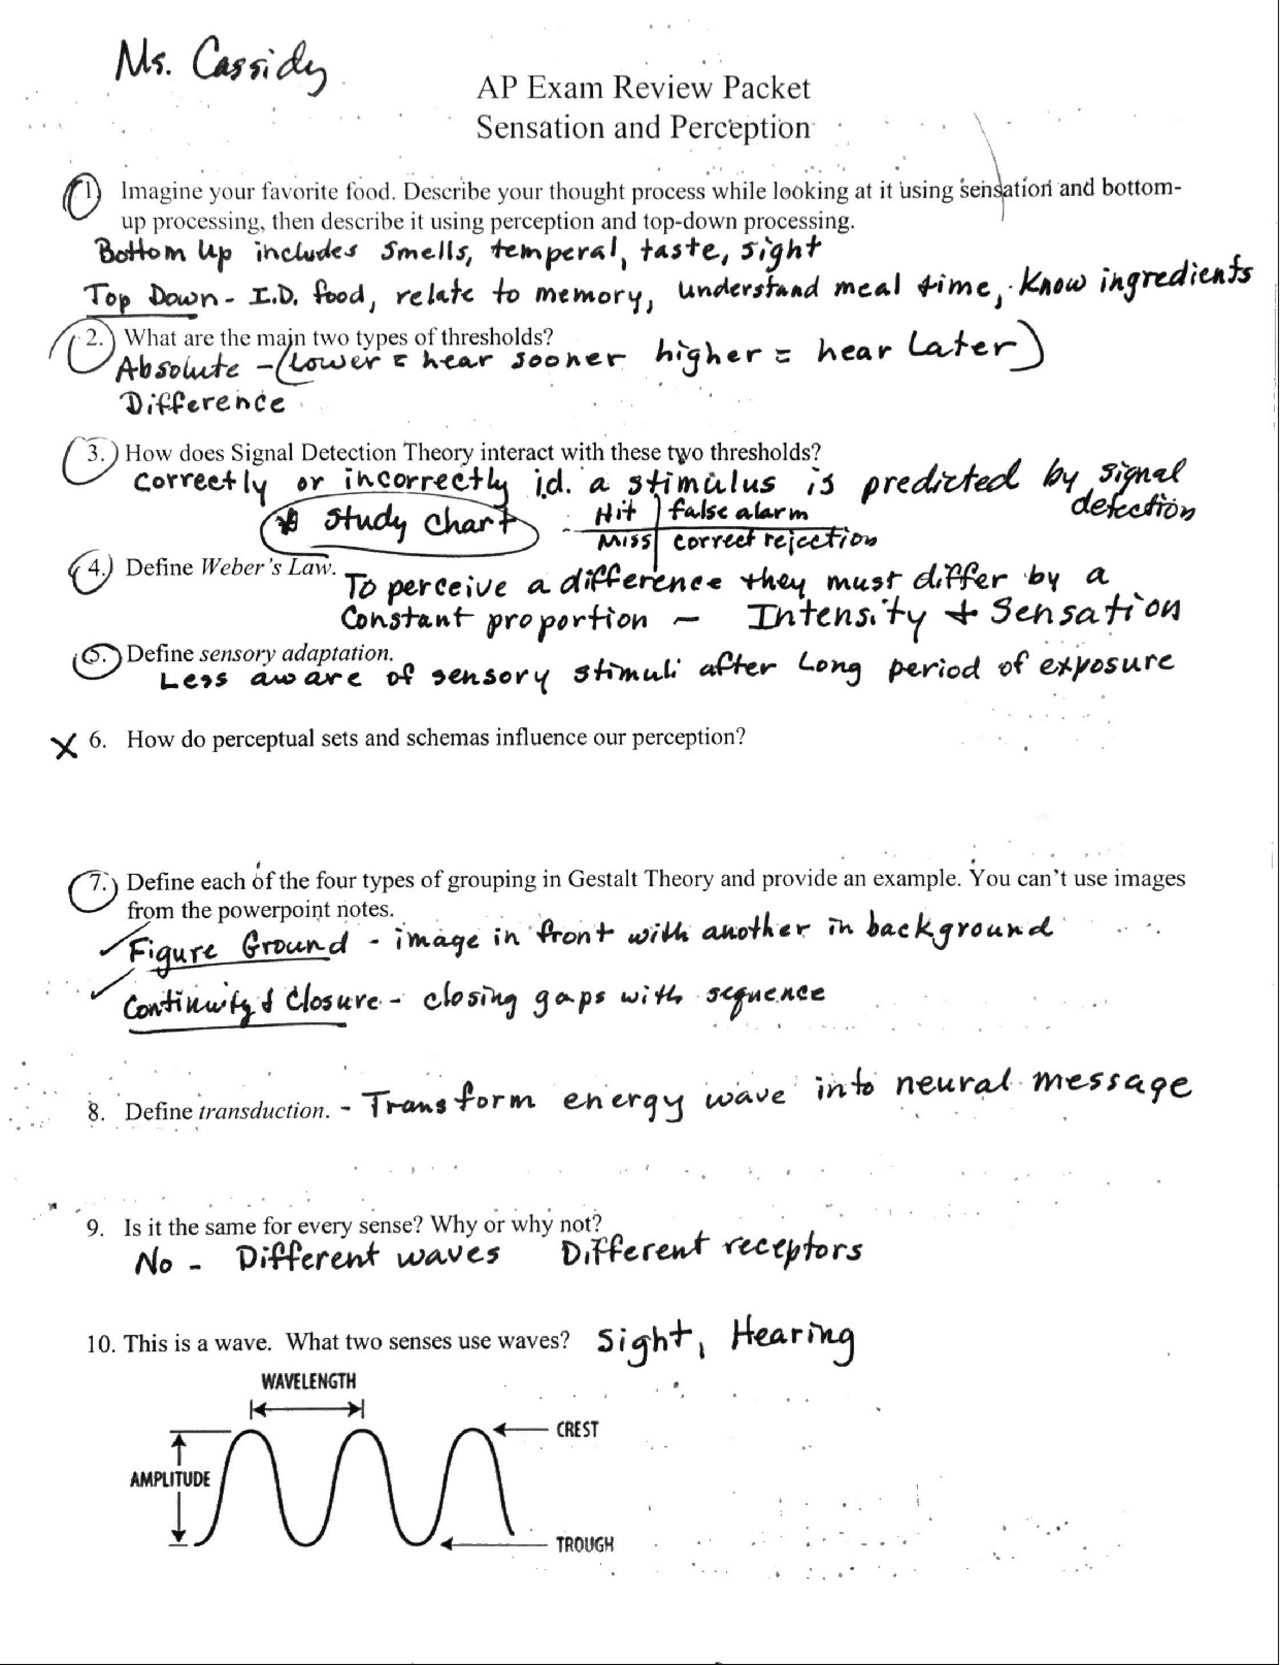 Ms. Cassidy
AP Exam Review Packet
Sensation and Perception
1. Imagine your favorite food. Describe your thought process while looking at it using sensation and bottom-
up processing, then describe it using perception and top-down processing.
Bottom Up includes smells, temperal, taste, sight
Top Down - I.D. food, relate to memory, understand meal time, Know ingredients
2. What are the main two types of thresholds?
Absolute - (Lower = hear sooner higher = hear Later)
Difference
3. How does Signal Detection Theory interact with these two thresholds?
Correctly or incorrectly i.d. a stimulus is predicted by signal
detection
* Study Chart
Hit | false alarm
Miss | correct rejection
4. Define Weber's Law.
To perceive a difference they must differ by a
Constant proportion - Intensity + Sensation
5. Define sensory adaptation.
Less aware of sensory stimuli after Long period of exposure
X 6. How do perceptual sets and schemas influence our perception?
7. Define each of the four types of grouping in Gestalt Theory and provide an example. You can't use images
from the powerpoint notes.
✓ Figure Ground - image in front with another in background
✓ Continuity & Closure - closing gaps with sequence
8. Define transduction. - Transform energy wave into neural message
9. Is it the same for every sense? Why or why not?
No - Different waves Different receptors
10. This is a wave. What two senses use waves? Sight, Hearing
WAVELENGTH
CREST
AMPLITUDE
TROUGH